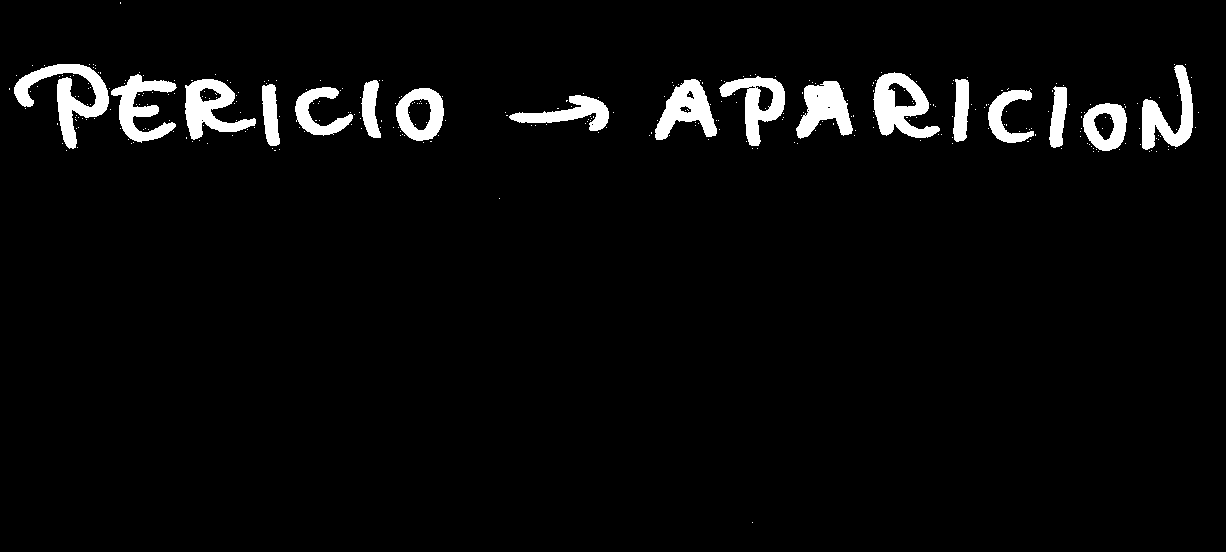 PERICIO → APARICION